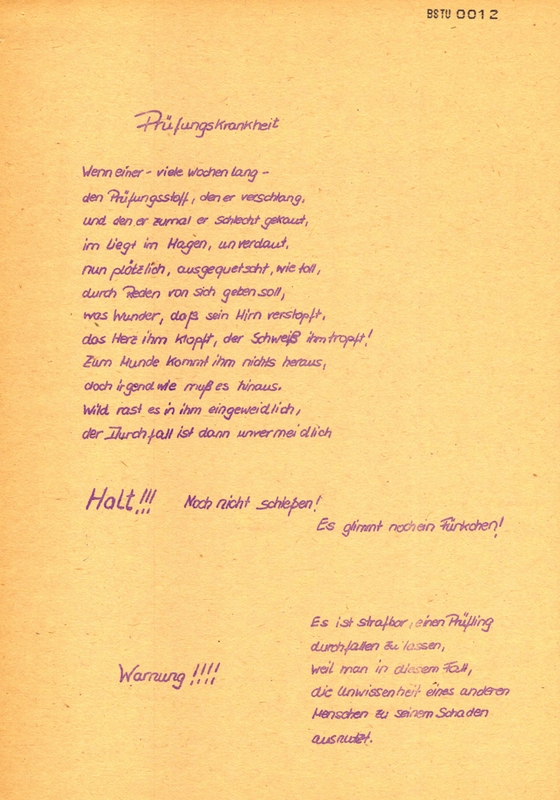 BSTU 0012
Prüfungskrankheit
Wenn einer - viele Wochen lang -
den Prüfungsstoff, den er verschlang,
und den er zumal er schlecht gekaut,
im liegt im Magen, unverdaut,
nun plötzlich, ausgequetscht, wie toll,
durch Reden von sich geben soll,
was Wunder, daß sein Hirn verstopft,
das Herz ihm klopft, der Schweiß ihm tropft!
Zum Munde kommt ihm nichts heraus,
doch irgendwie muß es hinaus.
Wild rast es in ihm eingeweidlich,
der Durchfall ist dann unvermeidlich
Halt!!! Noch nicht schießen!
Es glimmt noch ein Fünkchen!
Es ist strafbar, einen Prüfling
durchfallen zu lassen,
weil man in diesem Fall,
Warnung !!!!
die Unwissenheit eines anderen
Menschen zu seinem Schaden
ausnutzt.